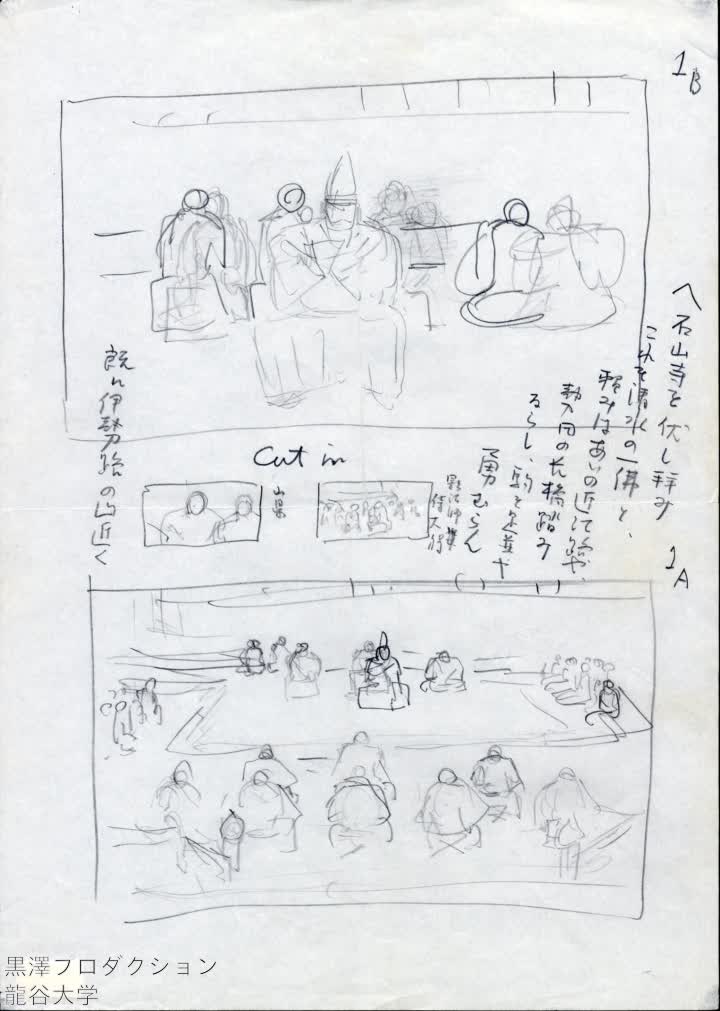 1B
〽石山寺を伏し拝み
これも清水の一佛と、
頼みはあいの近江路や、
勢田の長橋踏み
ならし、駒も足並や
勇むらん
既に伊勢路の山近く
Cut in
山県
侍大将
1A
黒澤プロダクション
龍谷大学